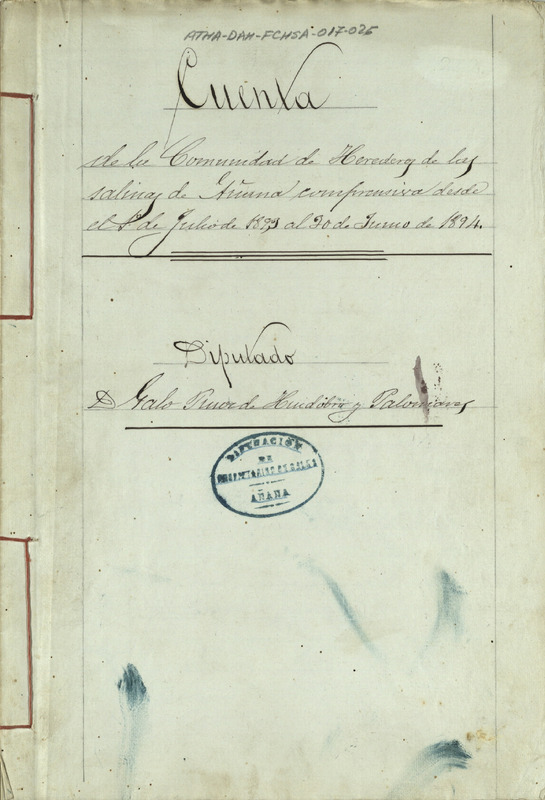 ATHA-DAH-FCHSA-017-026
Cuenta
de la Comunidad de Herederos de las
salinas de Añana comprensiva desde
el 1º de Julio de 1893 al 30 de Junio de 1894.
Diputado
D Galo de y Palomares
DIPUTACIÓN
DE
PROPIETARIOS DE SALES
AÑANA